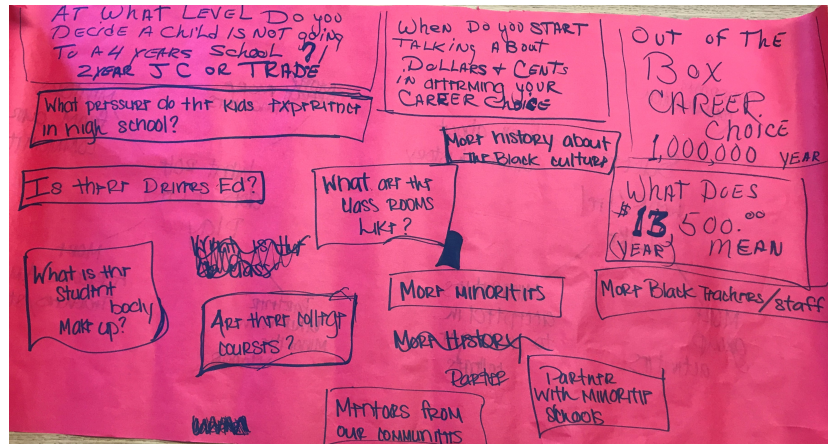 AT WHAT LEVEL DO you
DECIDE A CHILD IS NOT going
TO A 4 YEARS SCHOOL ?/
2YEAR JC OR TRADE
WHEN DO YOU START
TALKING ABOUT
DOLLARS & CENTS
IN AFFIRMING YOUR
CAREER CHOICE
OUT OF THE
BOX
CAREER
CHOICE
1,000,000 YEAR
What perssure do the kids experience
in high school?
More history about
the Black culture
Is there Drivers Ed?
What are the
class ROOMS
like?
WHAT DOES
$13,500.00
(YEAR) MEAN
What is the
student
body
Make up?
What is the
class
Are there college
courses?
More Minorities
More Black Teachers/staff
More History
Partner
Partner
with Minoritie
schools
Mentors from
our communities